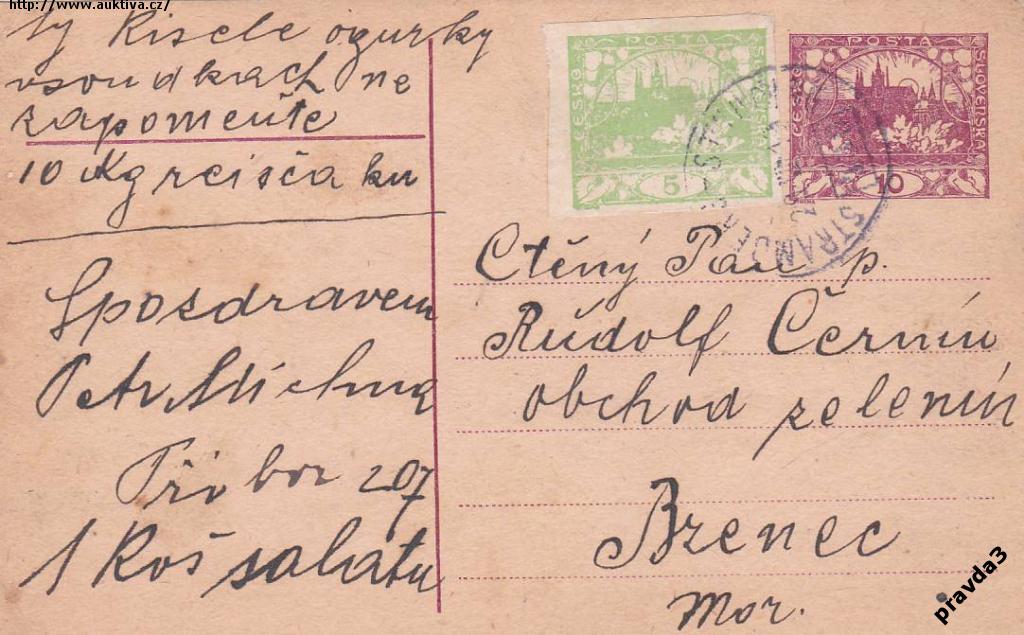 http://www.auktiva.cz/
ty Kisele ogurky
vsoudkach ne
zapomeňte
10 Kg reisča ku
Spozdravem
Petr Míchna
Při bor 207
1 Koš salatu
POSTA
ČESKO
SLOVENSKÁ
5
POSTA
ČESKO
SLOVENSKÁ
10
Ctěný Pan p.
Růdolf Černín
obchod zelenin
Bzenec
Mor.
pravda3